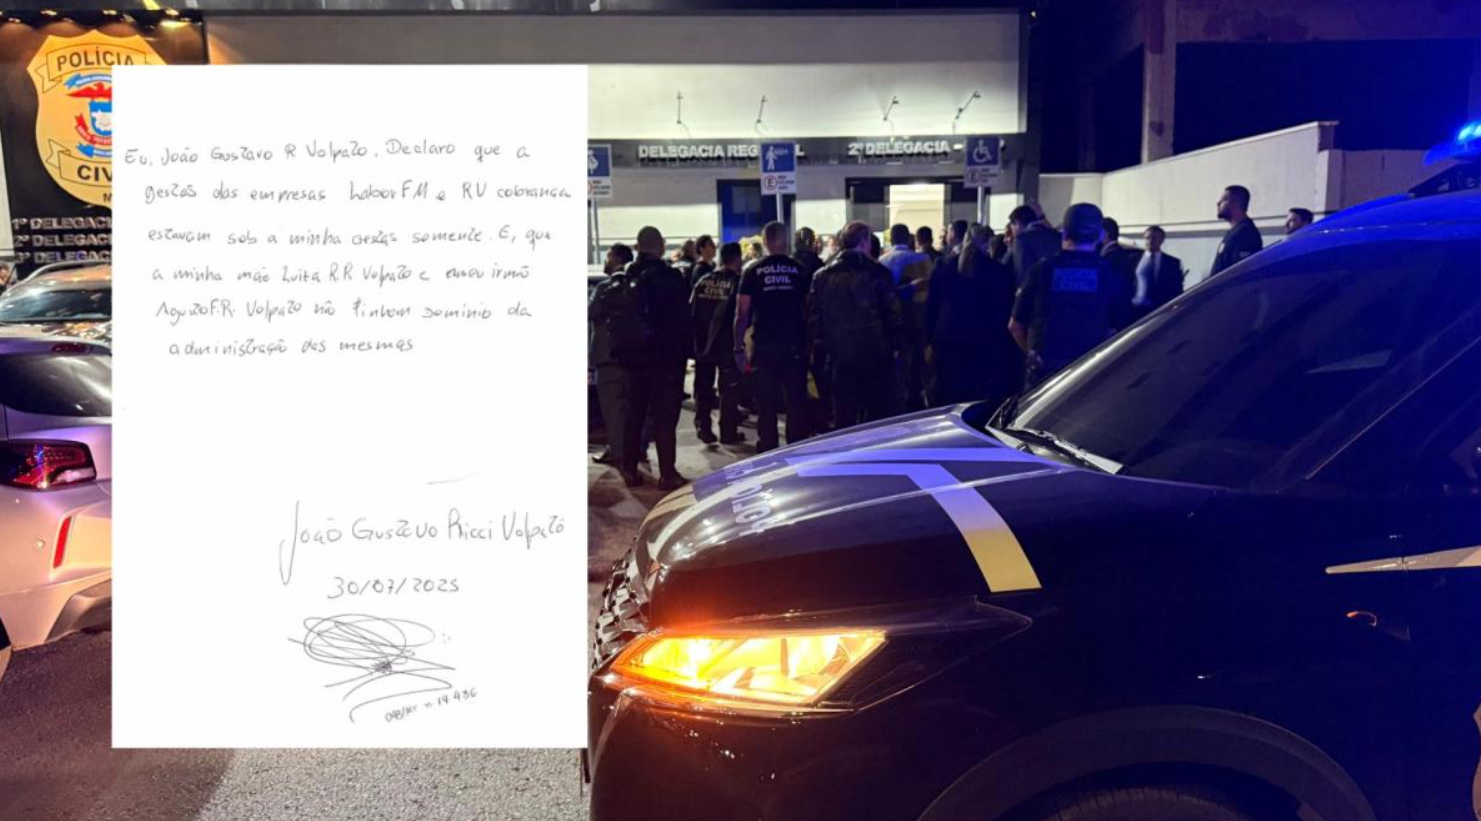 POLÍCIA
CIV
1ª DELEGAC
2ª DELEGAC
3ª DELEGAC
DELEGACIA REG L
2ª DELEGACIA
POLÍCIA
CIVIL
CIVIL
Eu, João Gustavo R Volpato. Declaro que a
gestão das empresas Labor FM e RV cobrança
estavam sob a minha gestão somente. E, que
a minha mãe Luiza R.R Volpato e meu irmão
Augusto F.R. Volpato não tinham dominio da
administração das mesmas
João Gustavo Ricci Volpato
30/07/2025
OAB/MT n. 19.436